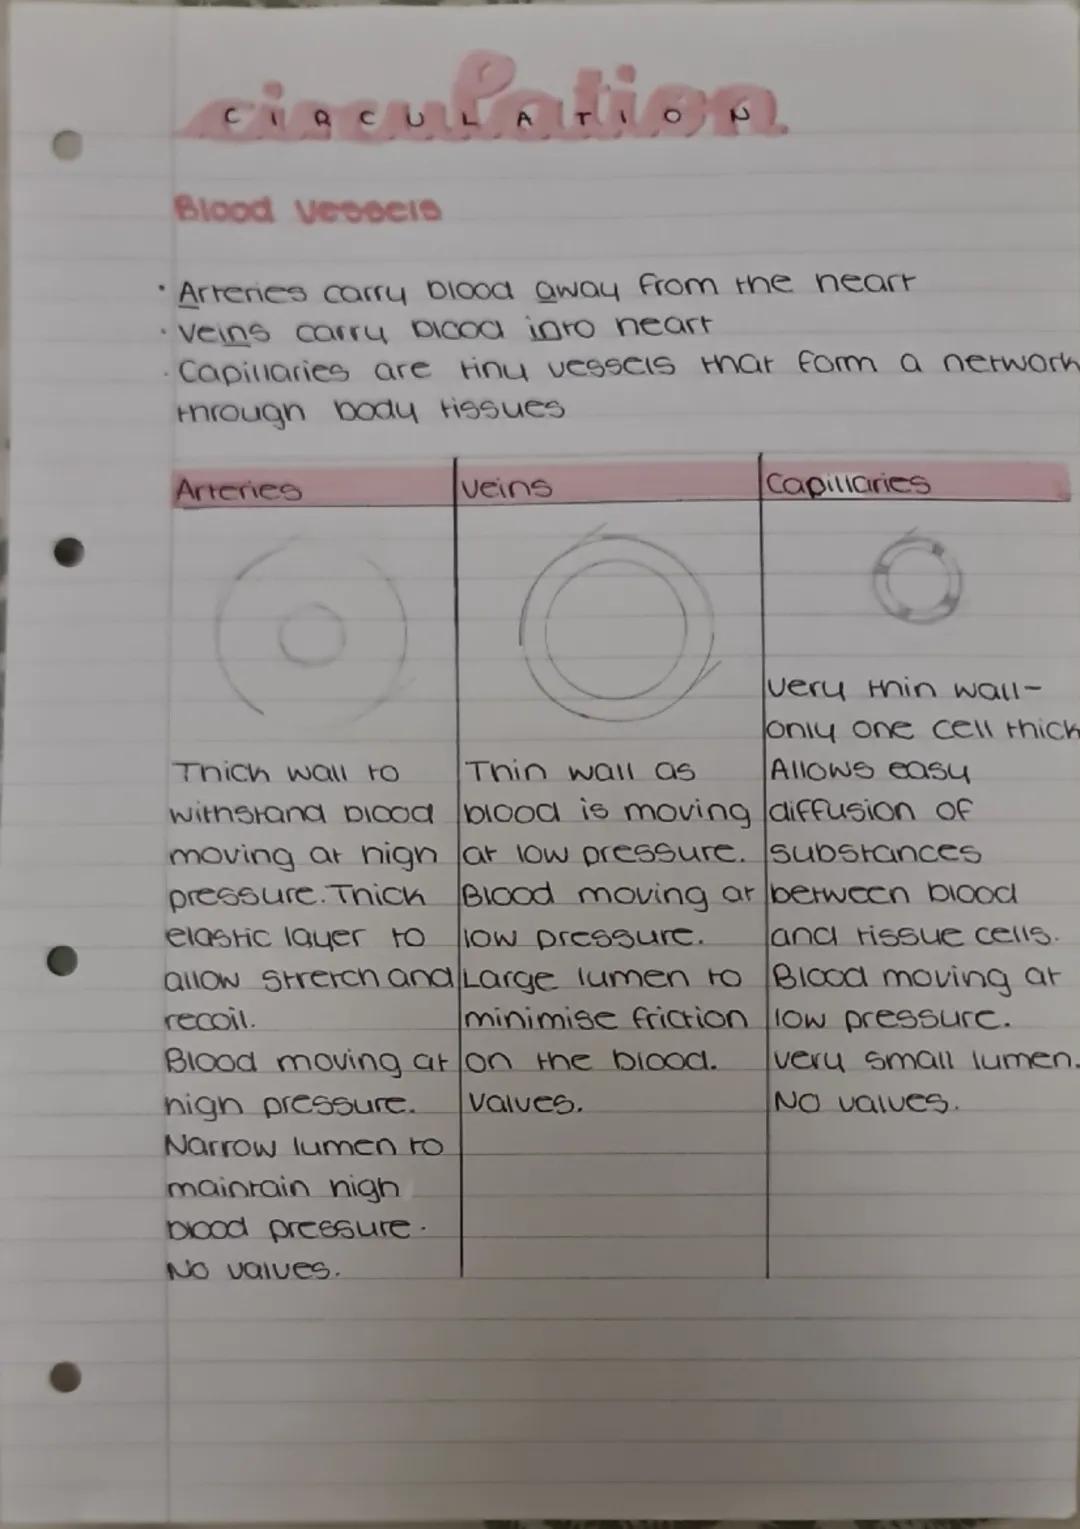 circulation
CIRCULATION
Blood Vessels
· Arteries carry blood away from the heart
· Veins carry blood into heart
· Capillaries are tiny vessels that form a network
through body tissues
Arteries
Veins
Capillaries
Thick wall to
withstand blood
moving at high
pressure. Thick
elastic layer to
allow stretch and
recoil.
Blood moving at
high pressure.
Narrow lumen to
maintain high
blood pressure.
No valves.
Thin wall as
blood is moving
at low pressure.
Blood moving at
low pressure.
Large lumen to
minimise friction
on the blood.
Valves.
Very thin wall-
only one cell thick
Allows easy
diffusion of
substances
between blood
and tissue cells.
Blood moving at
low pressure.
Very small lumen.
No valves.